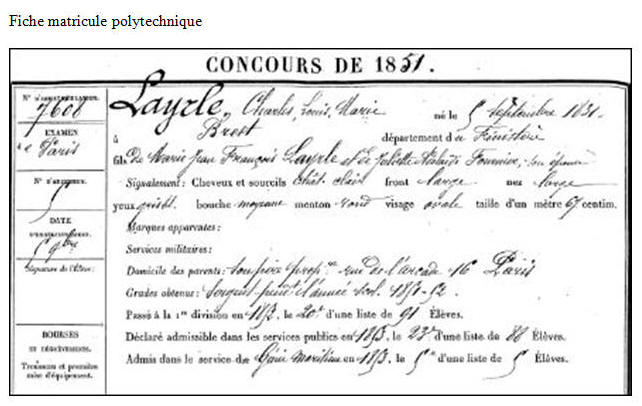 Fiche matricule polytechnique
CONCOURS DE 1851.
N° D'IMMATRICULATION.
7608
EXAMEN
de Paris
N° D'
5
DATE
5 9bre
Signature de l'Élève:
BOURSES
ET DÉGRÈVEMENTS.
Trousseau et première
mise d'équipement.
Layrle, Charles, Louis, Marie né le 5 Septembre 1831.
à Brest département du Finistère
fils de Marie Jean François Layrle et de Juliette Fournier, son épouse
Signalement: Cheveux et sourcils chât. clair front large nez large
yeux bouche moyenne menton rond visage ovale taille d'un mètre 67 centim.
Marques apparentes:
Services militaires:
Domicile des parents: rue de l'arcade 16 Paris
Grades obtenus: Sergent l'année scol. 1851-52.
Passé à la 1re division en 1853, le 20e d'une liste de 91 Élèves.
Déclaré admissible dans les services publics en 1853, le 23e d'une liste de 88 Élèves.
Admis dans le service du Génie maritime en 1853, le 5e d'une liste de 5 Élèves.